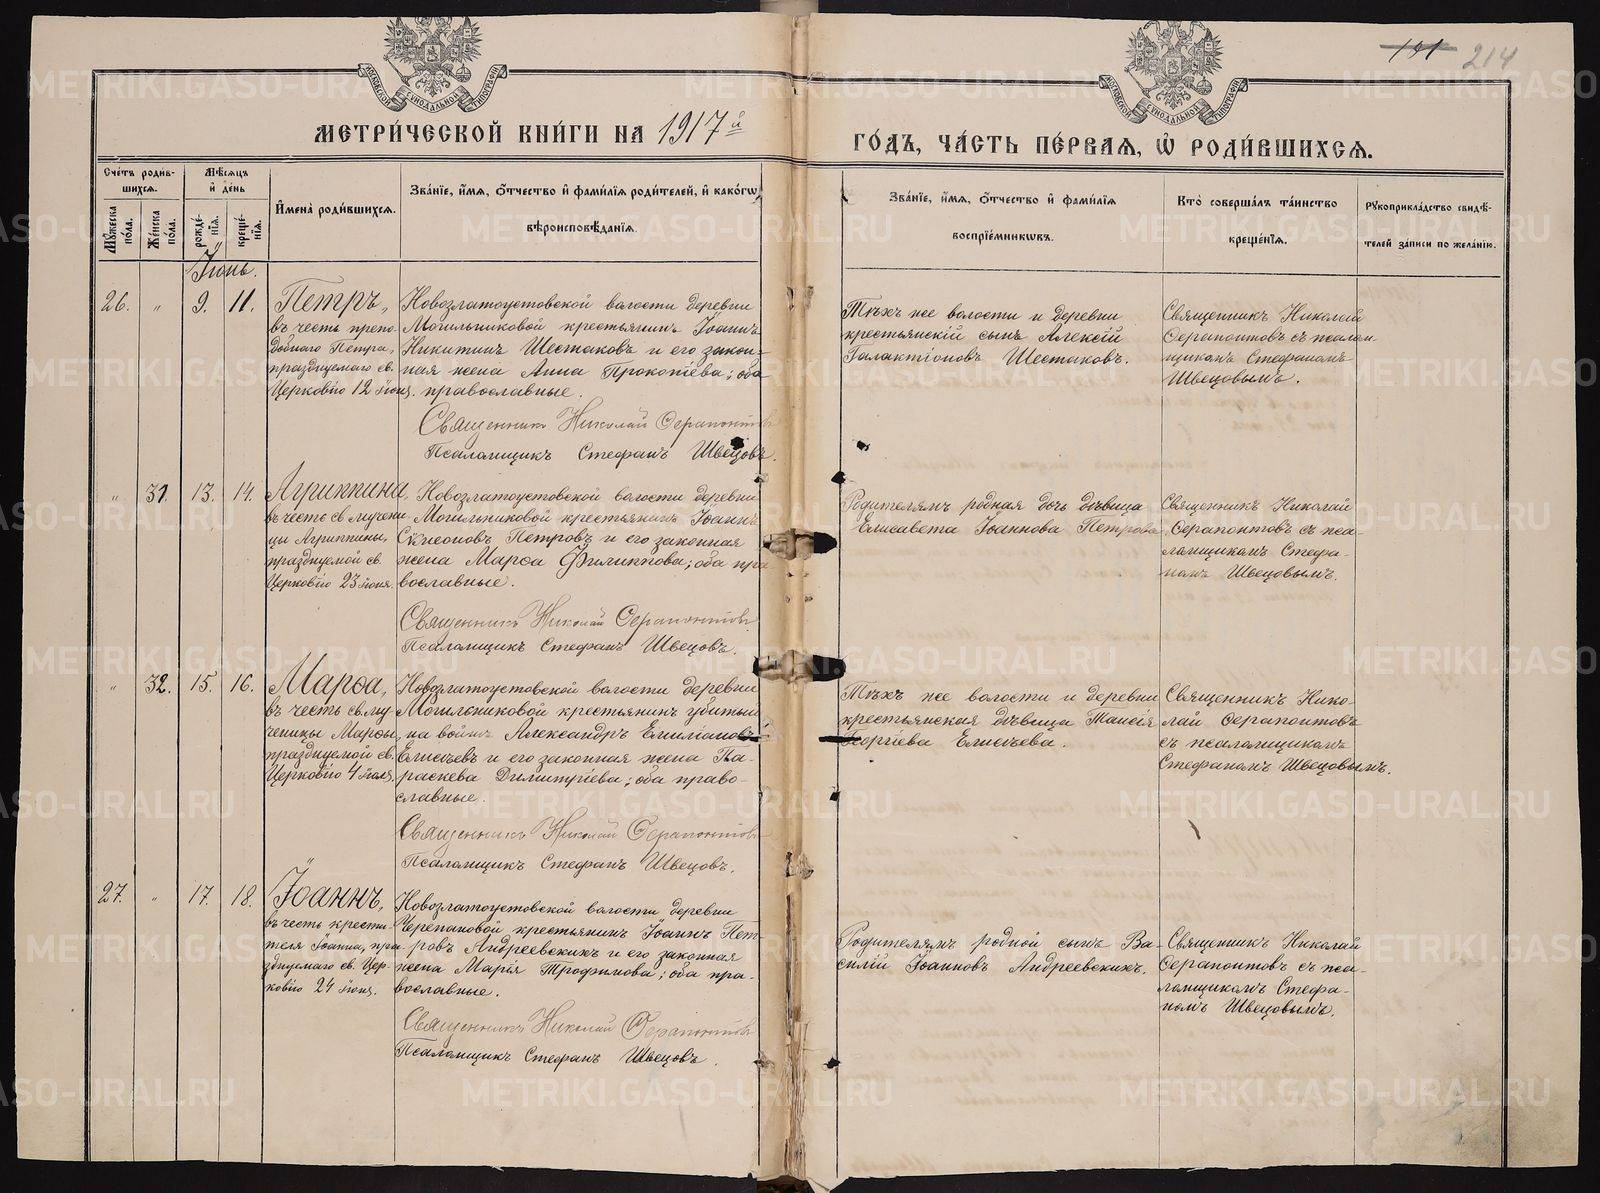 191 214
МЕТРИ́ЧЕСКОЙ КНИ́ГИ НА 1917й
ГО́ДЪ, ЧА́СТЬ ПЕ́РВАЯ, Ѽ РОДИ́ВШИХСЯ.
Сче́тъ роди́вшихся.
Мꙋ́жеска по́ла.
Же́нска по́ла.
Мѣ́сяцъ и҆ де́нь
рожде́нїя.
креще́нїя.
И҆мена̀ роди́вшихся.
Зва́нїе, и҆́мя, ѻ҆́тчество и҆ фами́лїя роди́телей, и҆ како́гѡ
вѣроисповѣ́данїя.
Зва́нїе, и҆́мя, ѻ҆́тчество и҆ фами́лїя
воспрїе́мникѡвъ.
Кто̀ соверша́лъ та́инство
креще́нїя.
Рꙋкоприкла́дство свидѣ́-
телей за́писи по жела́нїю.
Іюнь.
26. " 9. 11.
Петръ,
въ честь препо-
добнаго Петра,
празднуемаго св.
Церковію 12 Іюня.
Новозлатоустовской волости деревни
Могильниковой крестьянинъ Іоаннъ
Никитинъ Шестаковъ и его закон-
ная жена Анна Прокопіева; оба
православные.
Священникъ Николай Серапонтовъ
Псаломщикъ Стефанъ Швецовъ.
Тѣхъ же волости и деревни
крестьянскій сынъ Алексій
Галактіоновъ Шестаковъ.
Священникъ Николай
Серапонтовъ съ псалом
щикомъ Стефаномъ
Швецовымъ.
" 31. 13. 14.
Агриппина,
въ честь св. мучени-
цы Агриппины,
празднуемой св.
Церковію 23 іюня.
Новозлатоустовской волости деревни
Могильниковой крестьянинъ Іоаннъ
Симеоновъ Петровъ и его законная
жена Марѳа Филиппова; оба пра
вославные.
Священникъ Николай Серапонтовъ
Псаломщикъ Стефанъ Швецовъ.
Родителямъ родная дочь дѣвица
Елисавета Іоаннова Петрова
Священникъ Николай
Серапонтовъ съ пса-
ломщикомъ Стефа-
номъ Швецовымъ.
" 32. 15. 16.
Марѳа,
въ честь св. му-
ченицы Марѳы,
празднуемой св.
Церковію 4 Іюля.
Новозлатоустовской волости деревни
Могильниковой крестьянинъ убитый
на войнѣ Александръ Емиліановъ
Елисѣевъ и его законная жена Па-
раскева Димитріева; оба право-
славные.
Священникъ Николай Серапонтовъ
Псаломщикъ Стефанъ Швецовъ.
Тѣхъ же волости и деревни
крестьянская дѣвица Таисія
Георгіева Елисѣева.
Священникъ Нико-
лай Серапонтовъ
съ псаломщикомъ
Стефаномъ Швецовымъ.
27. " 17. 18.
Іоаннъ,
въ честь крести-
теля Іоанна, пра-
зднуемаго св. Цер-
ковію 24 іюня.
Новозлатоустовской волости деревни
Черепановой, крестьянинъ Іоаннъ Пет-
ровъ Андреевскихъ и его законная
жена Марія Трофимова; оба пра-
вославные.
Священникъ Николай Серапонтовъ
Псаломщикъ Стефанъ Швецовъ.
Родителямъ родной сынъ Ва-
силій Іоанновъ Андреевскихъ.
Священникъ Николай
Серапонтовъ съ пса-
ломщикомъ Стефа-
номъ Швецовымъ.
METRIKI.GASO-URAL.RU